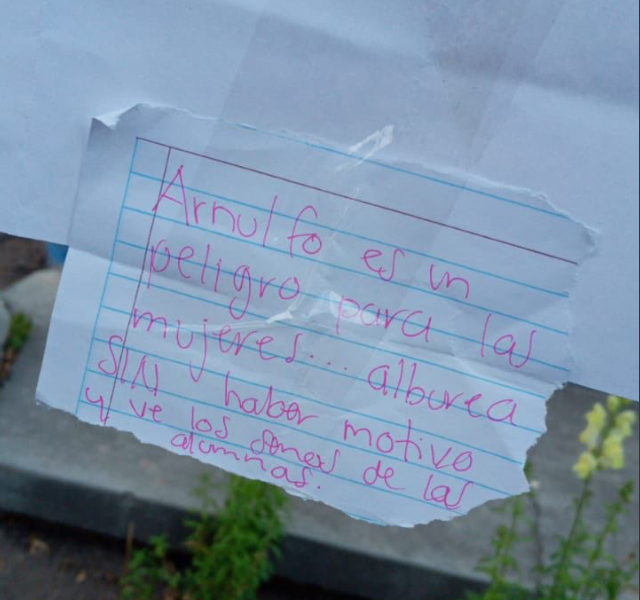 Arnulfo es un
peligro para las
mujeres... alburea
SIN haber motivo
y ve los senos de las
alumnas.